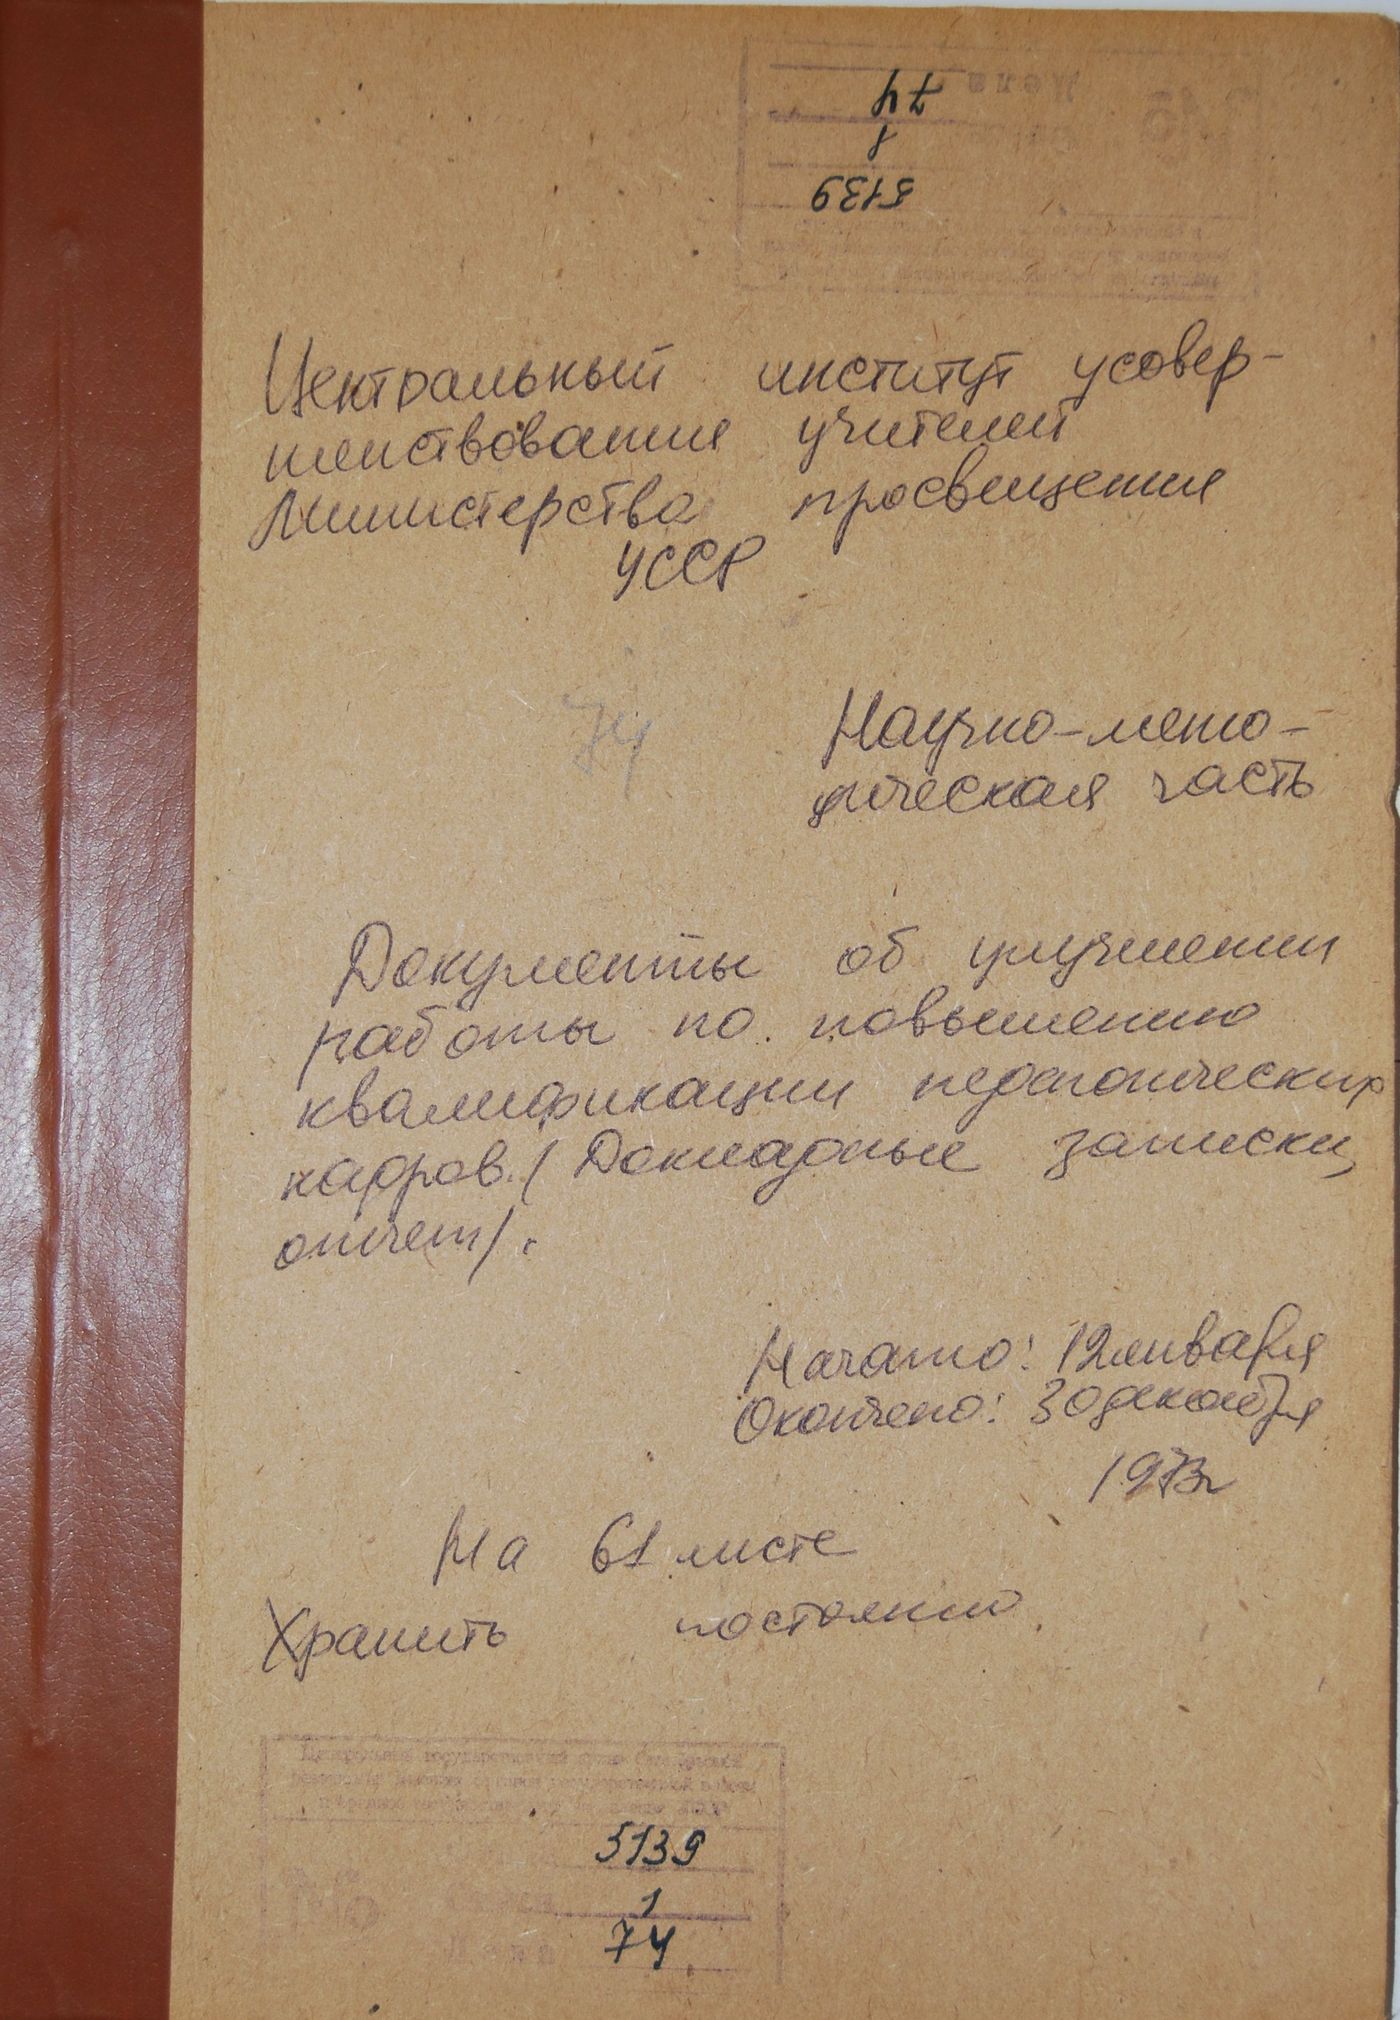 74
1
5139
Центральный институт усовер-
шенствования учителей
Министерства просвещения
УССР
74
Научно-мето-
дическая часть
Документы об улучшении
работы по повышению
квалификации педагогических
кадров. (Докладные записки,
отчет).
Начато: 12 января
Окончено: 30 декабря
1973г
На 61 листе
Хранить постоянно
Центральный государственный архив
5139
1
Дело 74